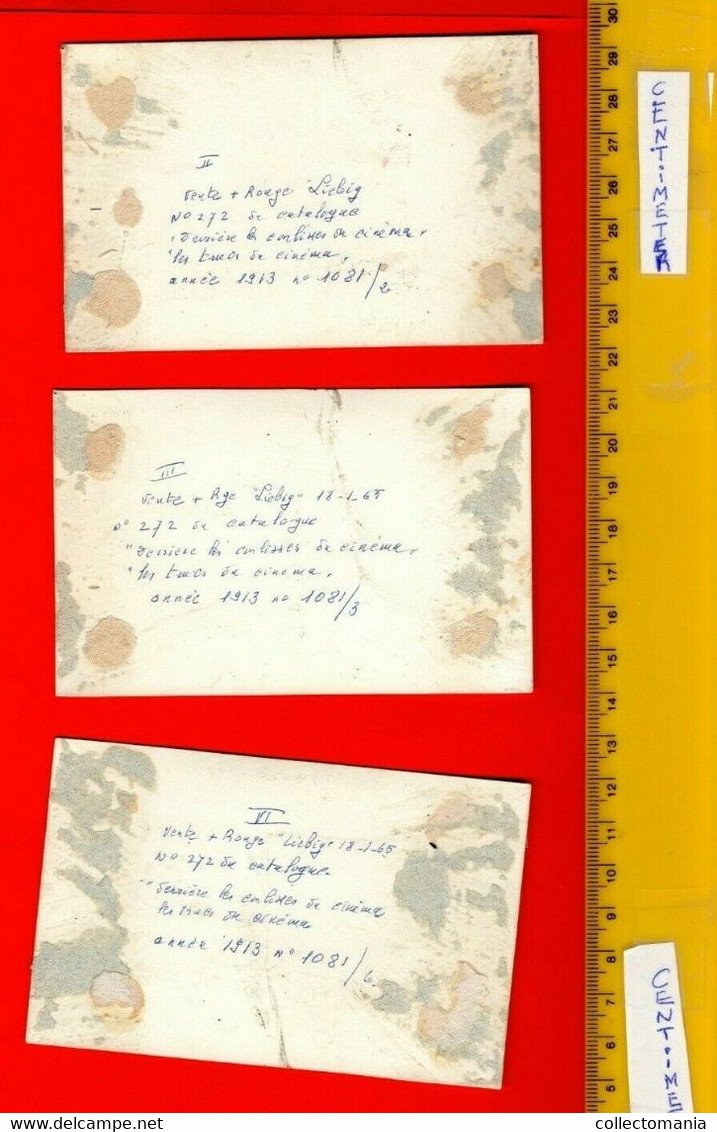 II
Vente + Rouge "Liebig
No 272 du catalogue
"Derrière les coulisses du cinéma,
"les trucs du cinéma,
année 1913 no 1081/2
III
Vente + Rge "Liebig" 18-1-65
No 272 du catalogue
"Derrière les coulisses du cinéma,
"les trucs du cinema,
année 1913 no 1081/3
VI
Vente + Rouge "Liebig" 18-1-65
No 272 du catalogue
"Derrière les coulisses du cinéma
les trucs du cinéma
année 1913 No 1081/6
30
29
28
27
26
25
24
23
22
21
20
19
18
17
16
15
14
13
12
11
10
9
8
7
6
5
CENTIMETER
CENTIME
collectomania